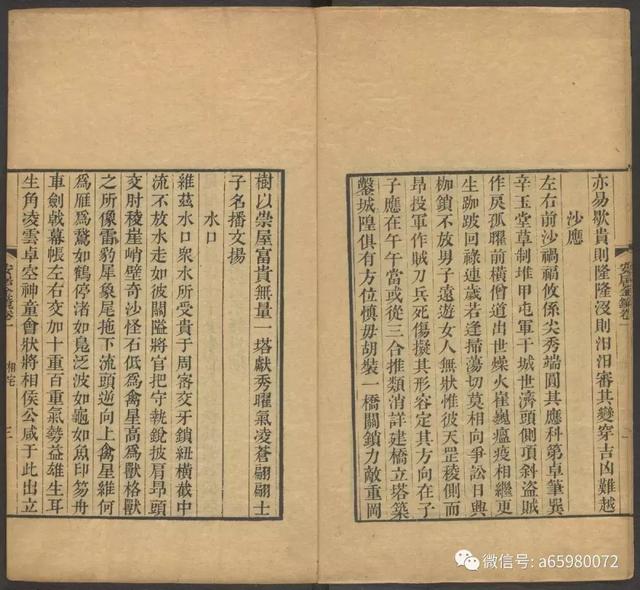 亦易歇貴則隆隆沒則汨汨審其變穿吉凶難越
沙應
左右前沙禍福攸係尖秀端圓其應科第卓筆巽
辛玉堂草制堆甲屯軍干城世濟頭側項斜盜賊
作戾孤曜前橫僧道出世燥火崔巍瘟疫相繼更
生跏跛回祿連歲若逢掃蕩切莫相向爭訟日興
枷鎖不放男子遠遊女人無狀惟彼天罡稜側而
昂投軍作賊刀兵死傷擬其形容定其方向在子
子應在午午當或從三合推類消詳建橋立塔築
鑿城隍俱有方位慎毋胡裝一橋關鎖力敵重岡
安居金鏡卷一
樹以崇屋富貴無量一塔獻秀曜氣凌蒼翩翩士
子名播文揚
水口
維茲水口衆水所受貴于周密交牙鎖紐橫截中
流不放水走如彼關隘將官把守執銳披肩昂頭
交肘稜崖峭壁奇沙怪石低爲禽星高爲獸格獸
之所像雷豹犀象尾拖下流頭逆向上禽星維何
爲雁爲鶩如鶴停渚如鳧泛波如龜如魚印笏舟
車劍戟幕帳左右交加十重百重氣勢益雄生耳
生角凌雲卓空神童會狀將相侯公咸于此出立
安居金鏡卷一 相宅 三
微信号: a65980072